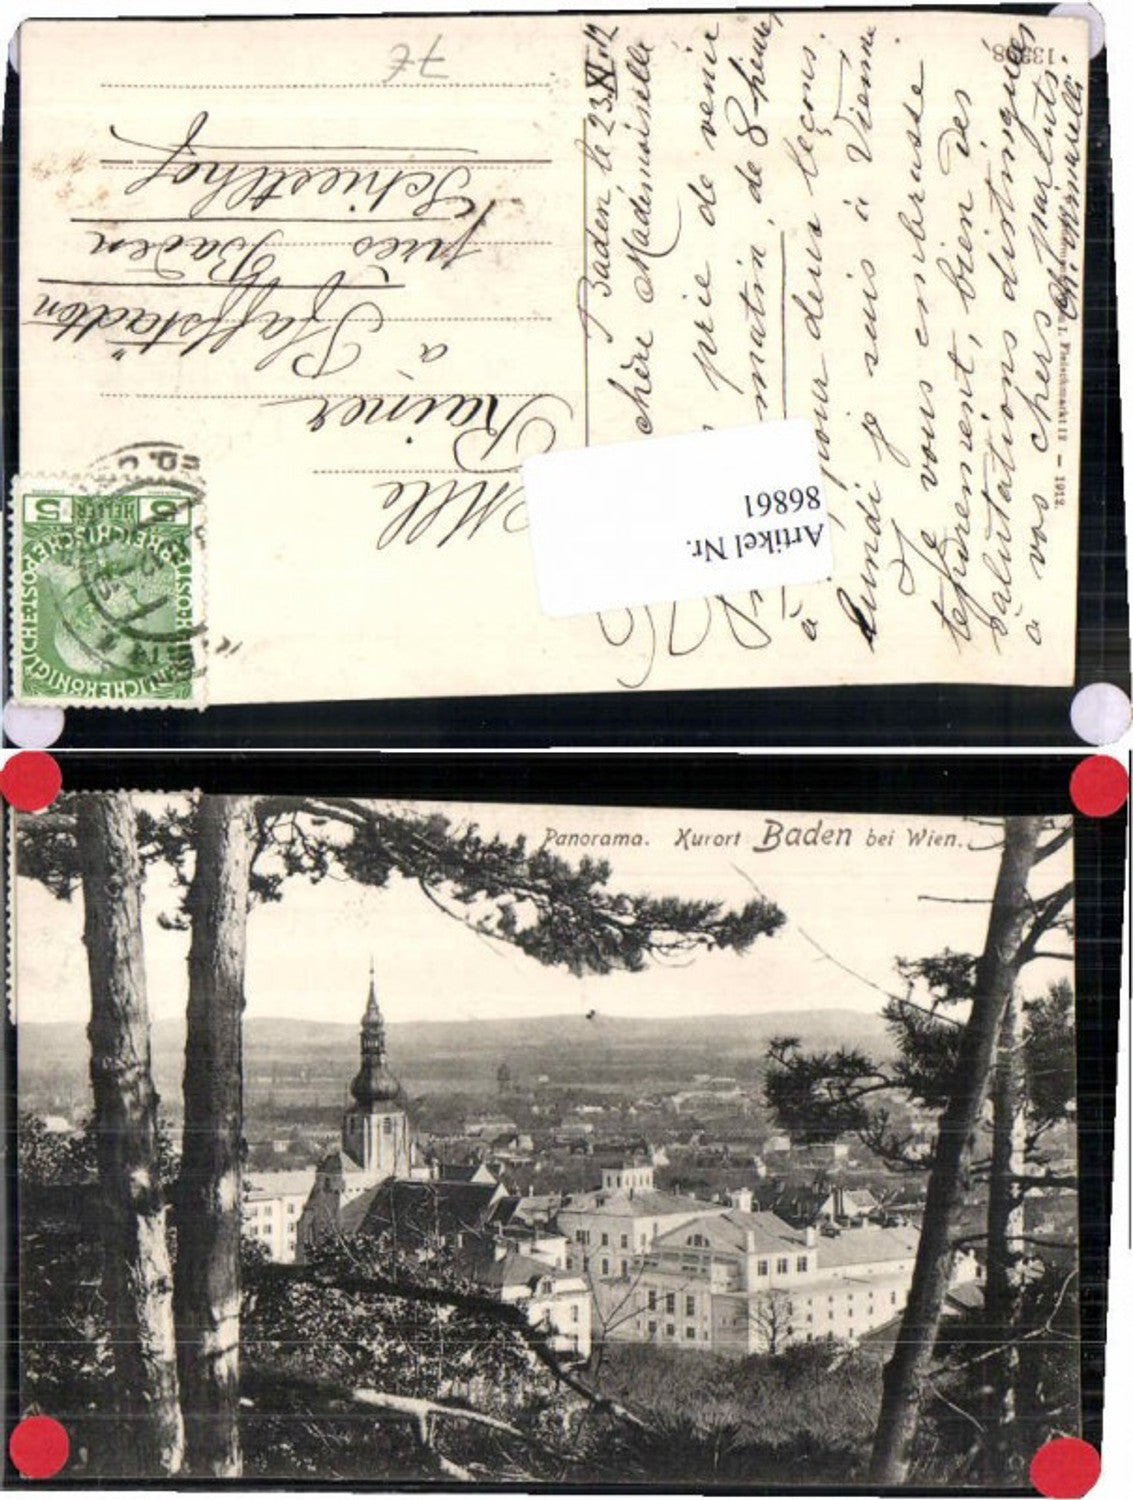 Baden le 23.XI.12
chère Mademoiselle
prie de venir
matin, de 8 heures
à pour deux leçons.
Lundi je suis à Vienne.
Je vous embrasse
tendrement, bien des
salutations distinguées
à vos chers parents.
Mlle
Rainer
à
Pfaffstädten
près Baden
Schiestlhof
7€
1912.
Artikel Nr.
86861
5 HELLER 5
Panorama. Kurort Baden bei Wien.